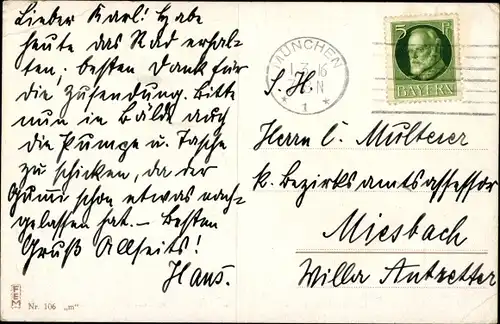 Lieber Karl! Habe
heute das Rad erhal-
ten, besten Dank für
die Zusendung. Bitte
nun in Bälde auch
die Pumpe u. Tasche
zu schicken, da der
Gummi schon etwas nach-
gelassen hat. — Besten
Gruß Allseits!
Hans.
FEM
Nr. 106 „m"
MÜNCHEN
16
N
* 1 *
5 Pf
BAYERN
S. H.
Herrn L. Multerer
k. Bezirksamtsassessor
Miesbach
Villa Antretter